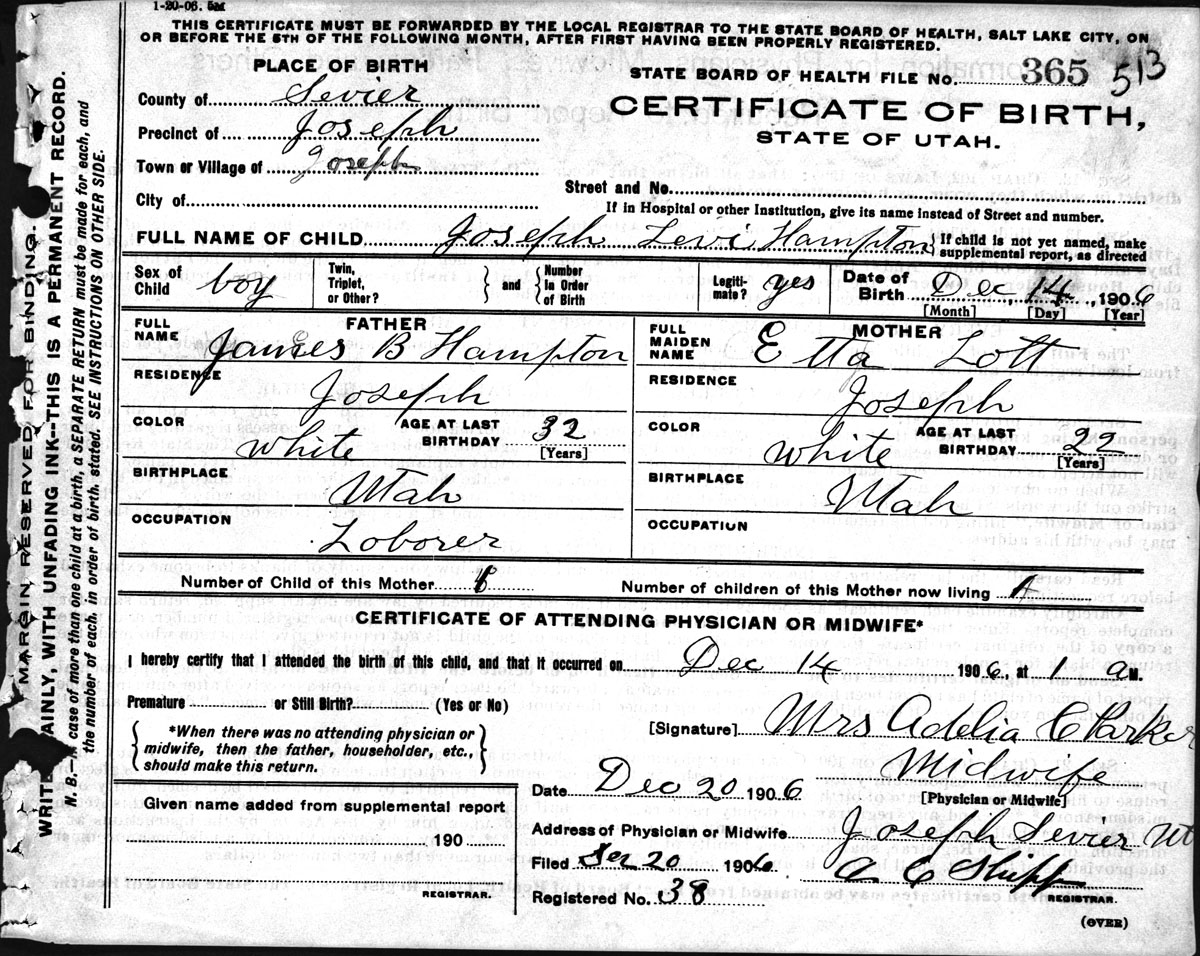 1-20-06. 5M
THIS CERTIFICATE MUST BE FORWARDED BY THE LOCAL REGISTRAR TO THE STATE BOARD OF HEALTH, SALT LAKE CITY, ON
OR BEFORE THE 5TH OF THE FOLLOWING MONTH, AFTER FIRST HAVING BEEN PROPERLY REGISTERED.
PLACE OF BIRTH
STATE BOARD OF HEALTH FILE No. 365 513
County of Sevier
CERTIFICATE OF BIRTH,
Precinct of Joseph
STATE OF UTAH.
Town or Village of Joseph
Street and No.
City of
If in Hospital or other Institution, give its name instead of Street and number.
FULL NAME OF CHILD Joseph Levi Hampton { If child is not yet named, make
supplemental report, as directed
Sex of Child boy
Twin, Triplet, or Other? } and { Number In Order of Birth
Legiti- mate? yes
Date of Birth Dec 14 , 1906
[Month] [Day] [Year]
FATHER
FULL NAME James B Hampton
RESIDENCE Joseph
COLOR White
AGE AT LAST BIRTHDAY 32
[Years]
BIRTHPLACE Utah
OCCUPATION Loborer
MOTHER
FULL MAIDEN NAME Etta Lott
RESIDENCE Joseph
COLOR White
AGE AT LAST BIRTHDAY 22
[Years]
BIRTHPLACE Utah
OCCUPATION
Number of Child of this Mother
Number of children of this Mother now living
CERTIFICATE OF ATTENDING PHYSICIAN OR MIDWIFE*
I hereby certify that I attended the birth of this child, and that it occurred on Dec 14 1906, at 1 a M.
Premature or Still Birth? (Yes or No)
{ *When there was no attending physician or
midwife, then the father, householder, etc.,
should make this return. }
[Signature] Mrs Adelia C Parker
Midwife
[Physician or Midwife]
Date Dec 20 1906
Address of Physician or Midwife Joseph Sevier
Filed 20 1906
REGISTRAR.
Registered No. 38
(OVER)
Given name added from supplemental report
190
REGISTRAR.
MARGIN RESERVED FOR BINDING.
WRITE PLAINLY, WITH UNFADING INK--THIS IS A PERMANENT RECORD.
N. B.--In case of more than one child at a birth, a SEPARATE RETURN must be made for each, and
the number of each, in order of birth, stated. SEE INSTRUCTIONS ON OTHER SIDE.